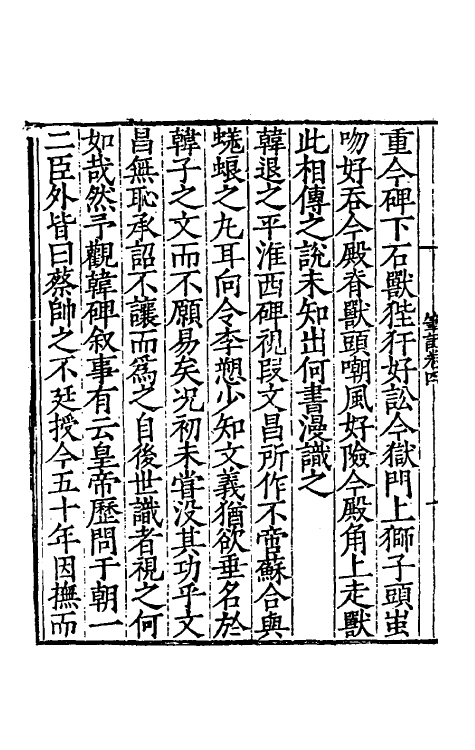 筆記卷四
重今碑下石獸狴犴好訟今獄門上獅子頭蚩
吻好吞今殿脊獸頭嘲風好險今殿角上走獸
此相傳之說未知出何書漫識之
韓退之平淮西碑視段文昌所作不啻蘇合與
蜣蜋之丸耳向令李愬少知文義猶欲垂名於
韓子之文而不願易矣况初未嘗没其功乎文
昌無恥承詔不讓而爲之自後世識者視之何
如哉然予觀韓碑叙事有云皇帝歷問于朝一
二臣外皆曰蔡帥之不廷授今五十年因撫而